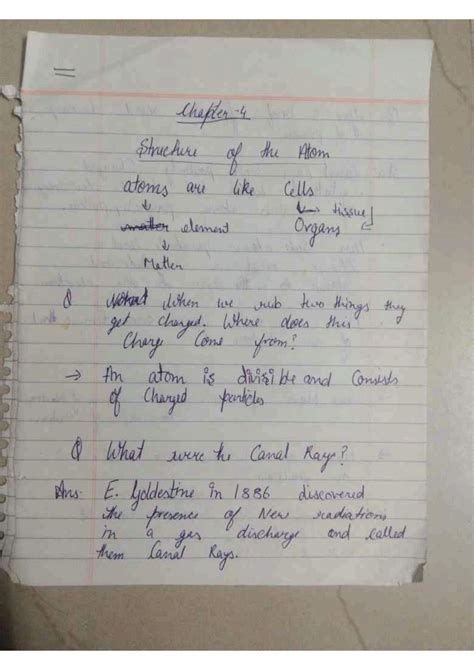 Chapter-4
Structure of the Atom
atoms are like Cells
↓ ↳ tissue
matter element Organs
↓
Matter
Q When we rub two things they
get charged. Where does this
Charge Come from?
→ An atom is divisible and Consists
of Charged particles
Q What were the Canal Rays?
Ans. E. Goldestine in 1886 discovered
the presence of New radiations
in a gas discharge and called
them Canal Rays.